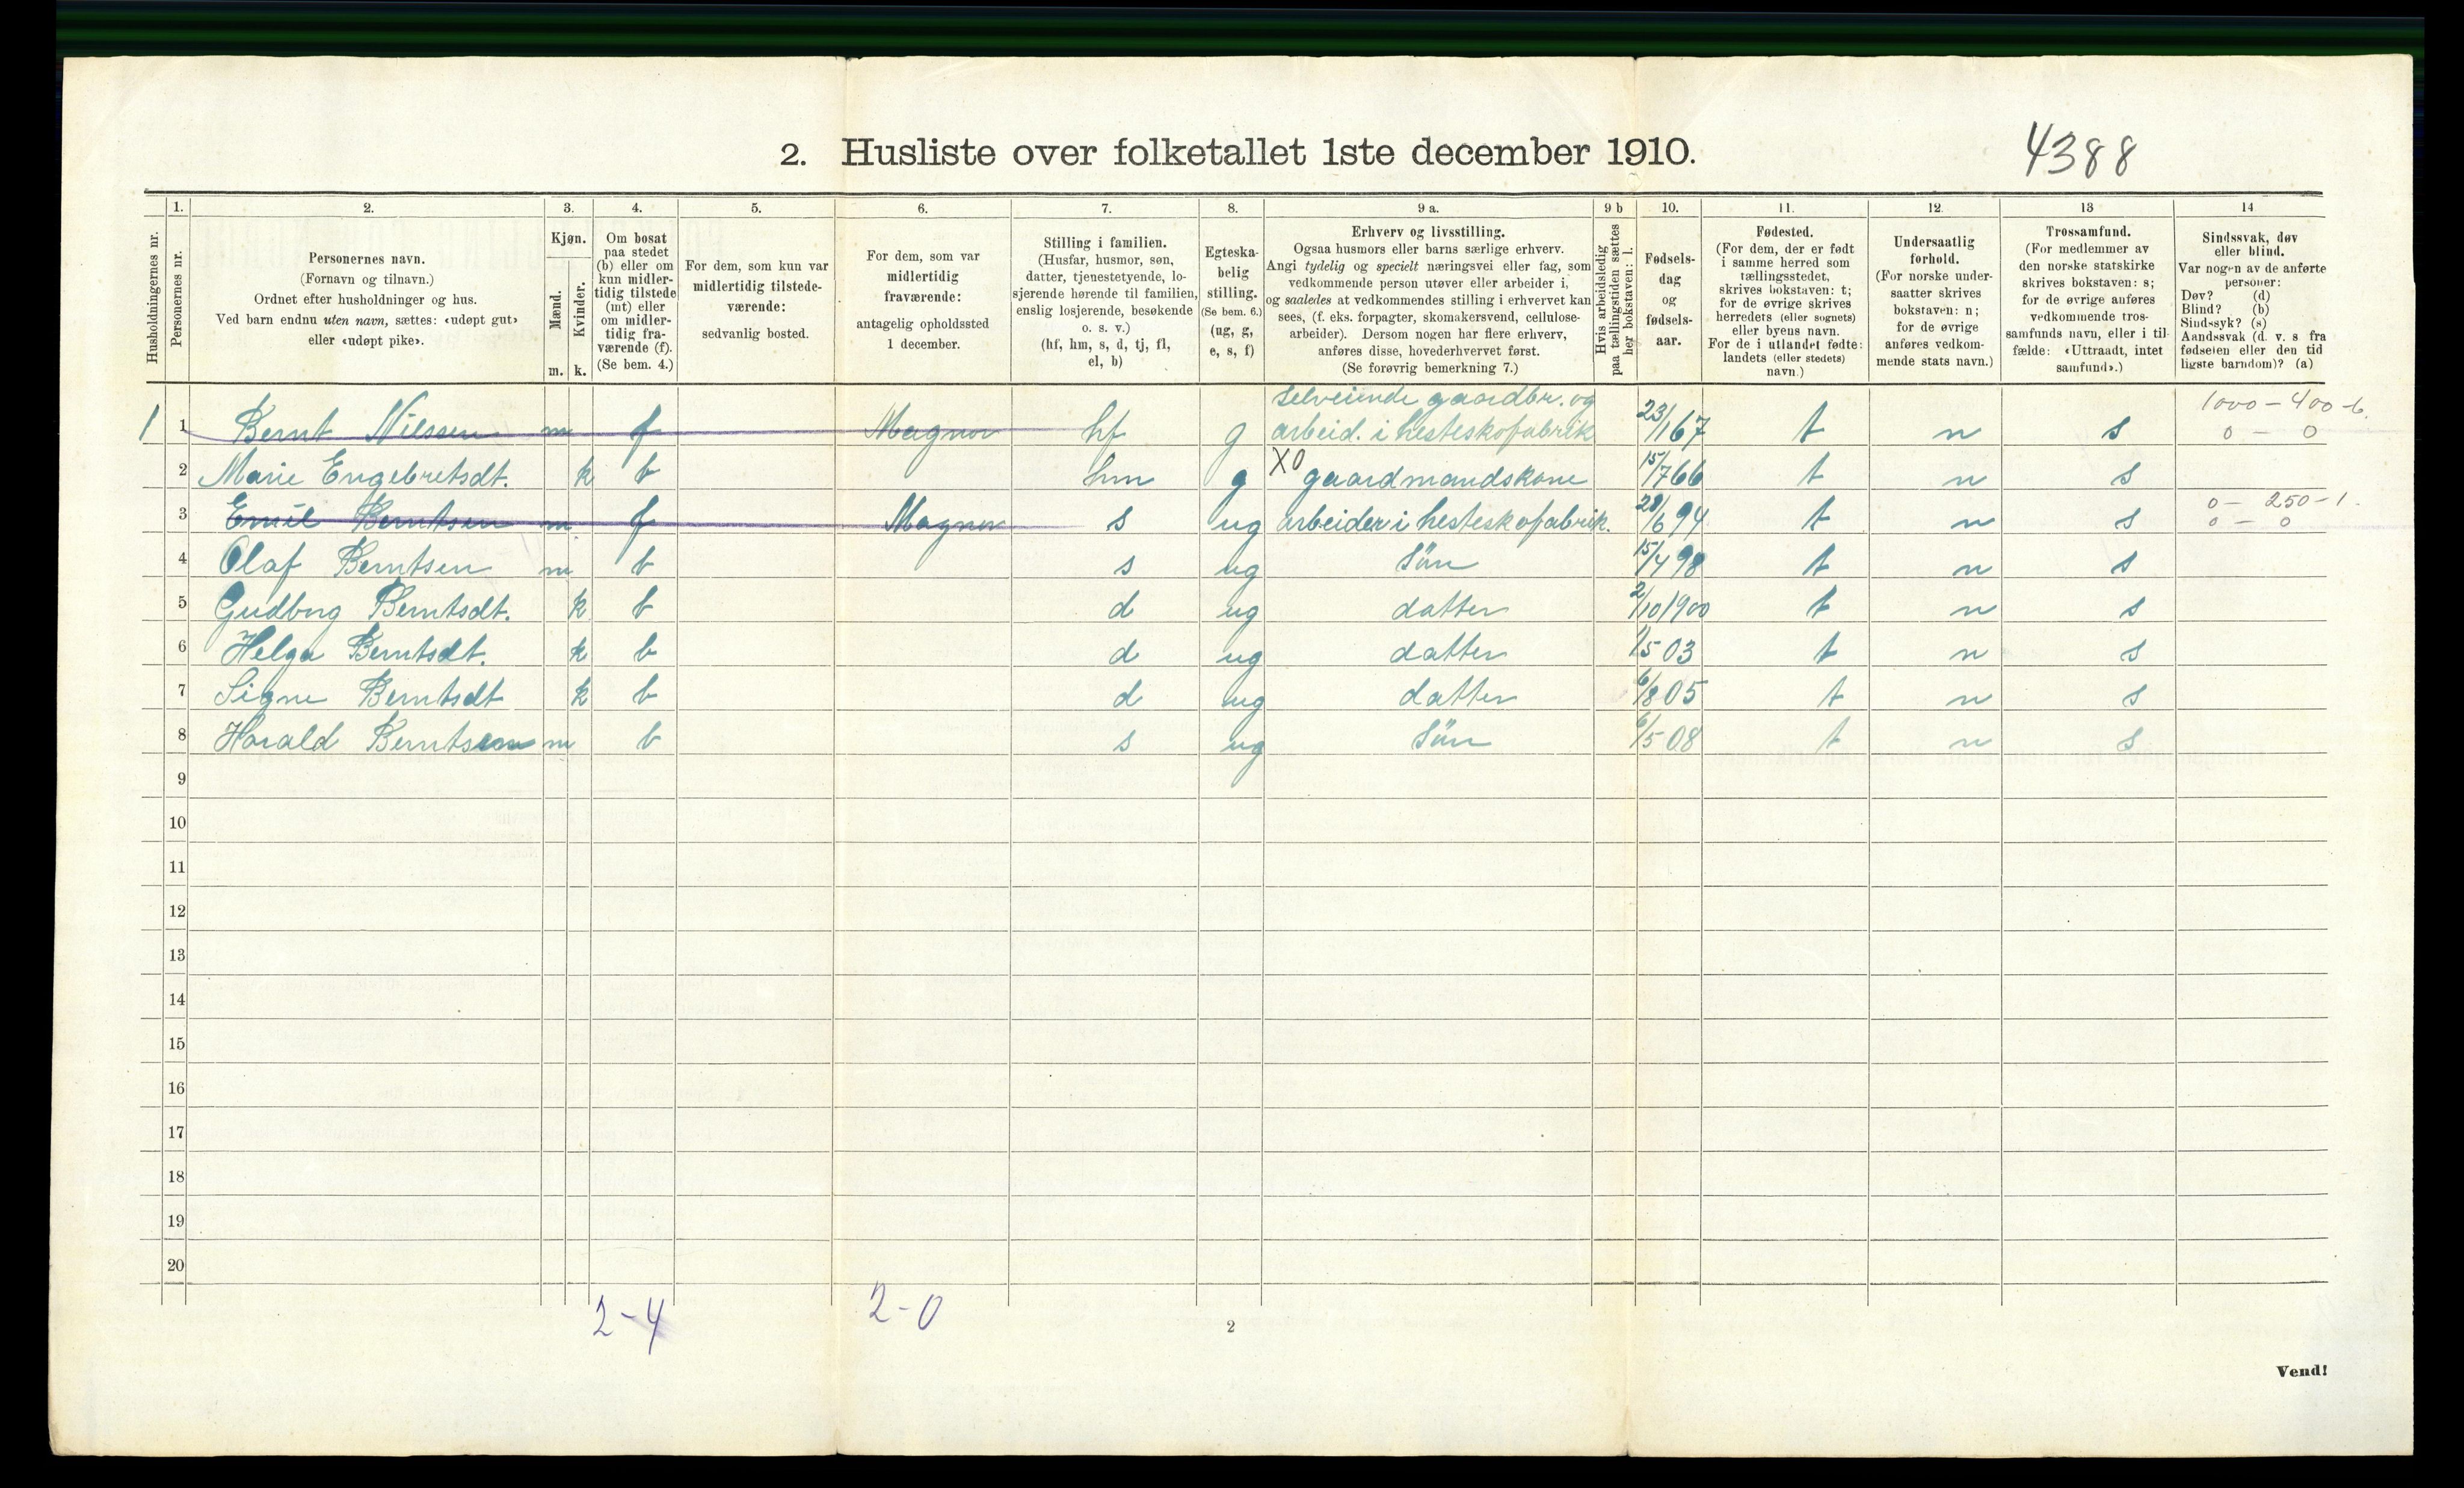 2. Husliste over folketallet 1ste december 1910.
4388
Husholdningernes nr.
1. Personernes nr.
2. Personernes navn. (Fornavn og tilnavn.) Ordnet efter husholdninger og hus. Ved barn endnu uten navn, sættes: «udøpt gut» eller «udøpt pike».
3. Kjøn. Mænd. m. Kvinder. k.
4. Om bosat paa stedet (b) eller om kun midlertidig tilstede (mt) eller om midlertidig fraværende (f). (Se bem. 4.)
5. For dem, som kun var midlertidig tilstedeværende: sedvanlig bosted.
6. For dem, som var midlertidig fraværende: antagelig opholdssted 1 december.
7. Stilling i familien. (Husfar, husmor, søn, datter, tjenestetyende, losjerende hørende til familien, enslig losjerende, besøkende o. s. v.) (hf, hm, s, d, tj, fl, el, b)
8. Egteskabelig stilling. (Se bem. 6.) (ug, g, e, s, f)
9 a. Erhverv og livsstilling. Ogsaa husmors eller barns særlige erhverv. Angi tydelig og specielt næringsvei eller fag, som vedkommende person utøver eller arbeider i, og saaledes at vedkommendes stilling i erhvervet kan sees, (f. eks. forpagter, skomakersvend, cellulosearbeider). Dersom nogen har flere erhverv, anføres disse, hovederhvervet først. (Se forøvrig bemerkning 7.)
9 b Hvis arbeidsledig paa tællingstiden sættes her bokstaven: l.
10. Fødselsdag og fødselsaar.
11. Fødested. (For dem, der er født i samme herred som tællingsstedet, skrives bokstaven: t; for de øvrige skrives herredets (eller sognets) eller byens navn. For de i utlandet fødte: landets (eller stedets) navn.)
12. Undersaatlig forhold. (For norske undersaatter skrives bokstaven: n; for de øvrige anføres vedkommende stats navn.)
13 Trossamfund. (For medlemmer av den norske statskirke skrives bokstaven: s; for de øvrige anføres vedkommende trossamfunds navn, eller i tilfælde: «Uttraadt, intet samfund».)
14 Sindssvak, døv eller blind. Var nogen av de anførte personer: Døv? (d) Blind? (b) Sindssyk? (s) Aandssvak (d. v. s fra fødselen eller den tidligste barndom)? (a)
1 1 Bernt Nilssen m f Magnor hf g selveiende gaardbr. og arbeid. i hesteskofabrik 23/1 67 t n s 1000 - 400 - 6. 0 - 0
2 Marie Engebretsdt. k b hm g X0 gaardmandskone 15/7 66 t n s
3 Emil Berntsen m f Magnor s ug arbeider i hesteskofabrik. 28/6 94 t n s 0 - 250 - 1. 0 - 0
4 Olaf Berntsen m b s ug Sön 15/4 98 t n s
5 Gudborg Berntsdt. k b d ug datter 2/10 1900 t n s
6 Helga Berntsdt. k b d ug datter 1/5 03 t n s
7 Signe Berntsdt k b d ug datter 6/8 05 t n s
8 Harald Berntsen m b s ug Sön 6/5 08 t n s
9
10
11
12
13
14
15
16
17
18
19
20
2-4 2-0
2
Vend!